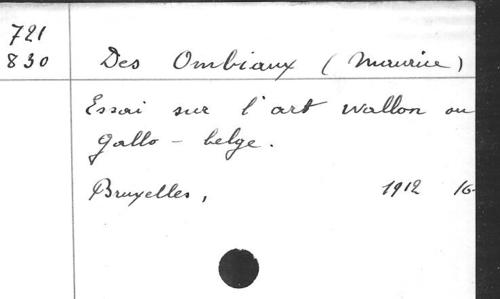 721
830
Des Ombiaux (Maurice)
Essai sur l'art wallon ou
gallo-belge.
Bruxelles, 1912 16-